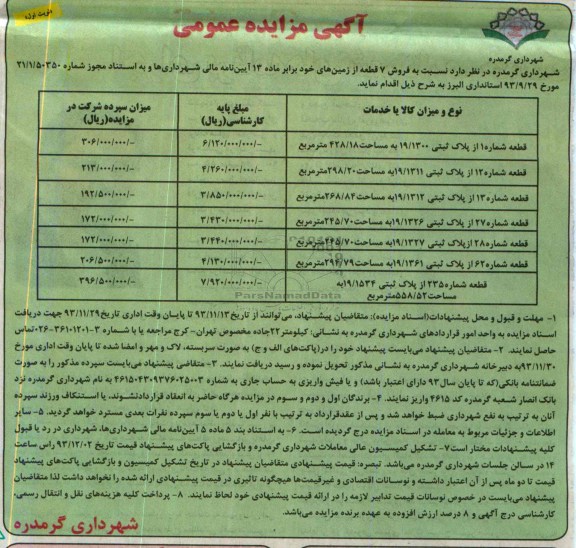 نوبت اول
آگهی مزایده عمومی
شهرداری گرمدره
شهرداری گرمدره در نظر دارد نسبت به فروش ۷ قطعه از زمین‌های خود برابر ماده ۱۳ آیین‌نامه مالی شهرداری‌ها و به استناد مجوز شماره ۲۱/۱/۵۰۳۵۰
مورخ ۹۳/۹/۲۹ استانداری البرز به شرح ذیل اقدام نماید.
نوع و میزان کالا یا خدمات مبلغ پایه کارشناسی(ریال) میزان سپرده شرکت در مزایده(ریال)
قطعه شماره۱ از پلاک ثبتی ۱۹/۱۳۰۰به مساحت۴۲۸/۱۸ مترمربع ۶/۱۲۰/۰۰۰/۰۰۰/- ۳۰۶/۰۰۰/۰۰۰/-
قطعه شماره۱۲ از پلاک ثبتی ۱۹/۱۳۱۱به مساحت۲۹۸/۲۰مترمربع ۴/۲۶۰/۰۰۰/۰۰۰/- ۲۱۳/۰۰۰/۰۰۰/-
قطعه شماره۱۳ از پلاک ثبتی ۱۹/۱۳۱۲به مساحت۲۶۸/۸۴مترمربع ۳/۸۵۰/۰۰۰/۰۰۰/- ۱۹۲/۵۰۰/۰۰۰/-
قطعه شماره۲۷ از پلاک ثبتی ۱۹/۱۳۲۶به مساحت۲۴۵/۷۰مترمربع ۳/۴۳۰/۰۰۰/۰۰۰/- ۱۷۲/۰۰۰/۰۰۰/-
قطعه شماره۲۸ ازپلاک ثبتی ۱۹/۱۳۲۷به مساحت۲۴۵/۷۰مترمربع ۳/۴۴۰/۰۰۰/۰۰۰/- ۱۷۲/۰۰۰/۰۰۰/-
قطعه شماره۶۲ از پلاک ثبتی ۱۹/۱۳۶۱به مساحت۲۹۴/۷۹مترمربع ۴/۱۳۰/۰۰۰/۰۰۰/- ۲۰۶/۵۰۰/۰۰۰/-
قطعه شماره۲۳۵از پلاک ثبتی ۱۹/۱۵۳۴به مساحت۵۵۸/۵۲مترمربع ۷/۹۲۰/۰۰۰/۰۰۰/- ۳۹۶/۵۰۰/۰۰۰/-
ParsNamadData
۱- مهلت و قبول و محل پیشنهادات(اسناد مزایده): متقاضیان پیشنهاد، می‌توانند از تاریخ۹۳/۱۱/۱۳ تا پایان وقت اداری تاریخ۹۳/۱۱/۲۹ جهت دریافت
اسناد مزایده به واحد امور قراردادهای شهرداری گرمدره به نشانی: کیلومتر۲۲جاده مخصوص تهران- کرج مراجعه یا با شماره ۳-۳۶۱۰۱۲۰۱-۰۲۶تماس
حاصل نمایند. ۲- متقاضیان پیشنهاد می‌بایست پیشنهاد خود را در(پاکت‌های الف و ج) به صورت سربسته، لاک و مهر و امضا شده تا پایان وقت اداری مورخ
۹۳/۱۱/۳۰به دبیرخانه شهرداری گرمدره به نشانی مذکور تحویل نموده و رسید دریافت نمایند. ۳- متقاضی پیشنهاد می‌بایست سپرده مذکور را به صورت
ضمانتنامه بانکی(که تا پایان سال۹۳ دارای اعتبار باشد) و یا فیش واریزی به حساب جاری به شماره به نام شهرداری گرمدره نزد
بانک انصار شعبه گرمدره کد ۴۶۱۵ واریز نمایند. ۴- برندگان اول و دوم و سوم در مزایده هرگاه حاضر به انعقاد قراردادنشوند، یا استنکاف ورزند سپرده
آنان به ترتیب به نفع شهرداری ضبط خواهد شد و پس از عقدقرارداد به ترتیب با نفر اول یا دوم یا سوم سپرده نفرات بعدی مسترد خواهد گردید. ۵- سایر
اطلاعات و جزئیات مربوط به معامله در اسناد مزایده درج گردیده است. ۶- به استناد بند ۵ ماده ۵ آیین‌نامه مالی شهرداری‌ها، شهرداری در رد یا قبول
کلیه پیشنهادات مختار است۷- تشکیل کمیسیون عالی معاملات شهرداری گرمدره و بازگشایی پاکت‌های پیشنهاد قیمت تاریخ ۹۳/۱۲/۰۲ راس ساعت
۱۴ در سالن جلسات شهرداری گرمدره می‌باشد. تبصره: قیمت پیشنهادی متقاضیان پیشنهاد در تاریخ تشکیل کمیسیون و بازگشایی پاکت‌های پیشنهاد
قیمت تا دو ماه پس از آن اعتبار داشته و نوسانات اقتصادی و غیرقیمت‌ها هیچگونه تاثیری در قیمت پیشنهادی ارائه شده را نخواهد داشت لذا متقاضیان
پیشنهاد می‌بایست در خصوص نوسانات قیمت تدابیر لازمه را در ارائه قیمت پیشنهادی خود لحاظ نمایند. ۸- پرداخت کلیه هزینه‌های نقل و انتقال رسمی،
کارشناسی درج آگهی و ۸ درصد ارزش افزوده به عهده برنده مزایده می‌باشد.
شهرداری گرمدره